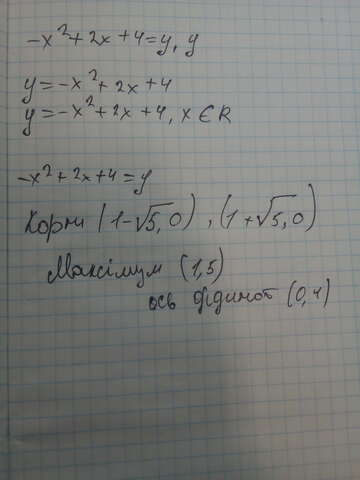 -x²+2x+4=y, y
y=-x²+2x+4
y=-x²+2x+4, x∈R
-x²+2x+4=y
Корни (1-√5,0), (1+√5,0)
Максімум (1,5)
ось (0,4)